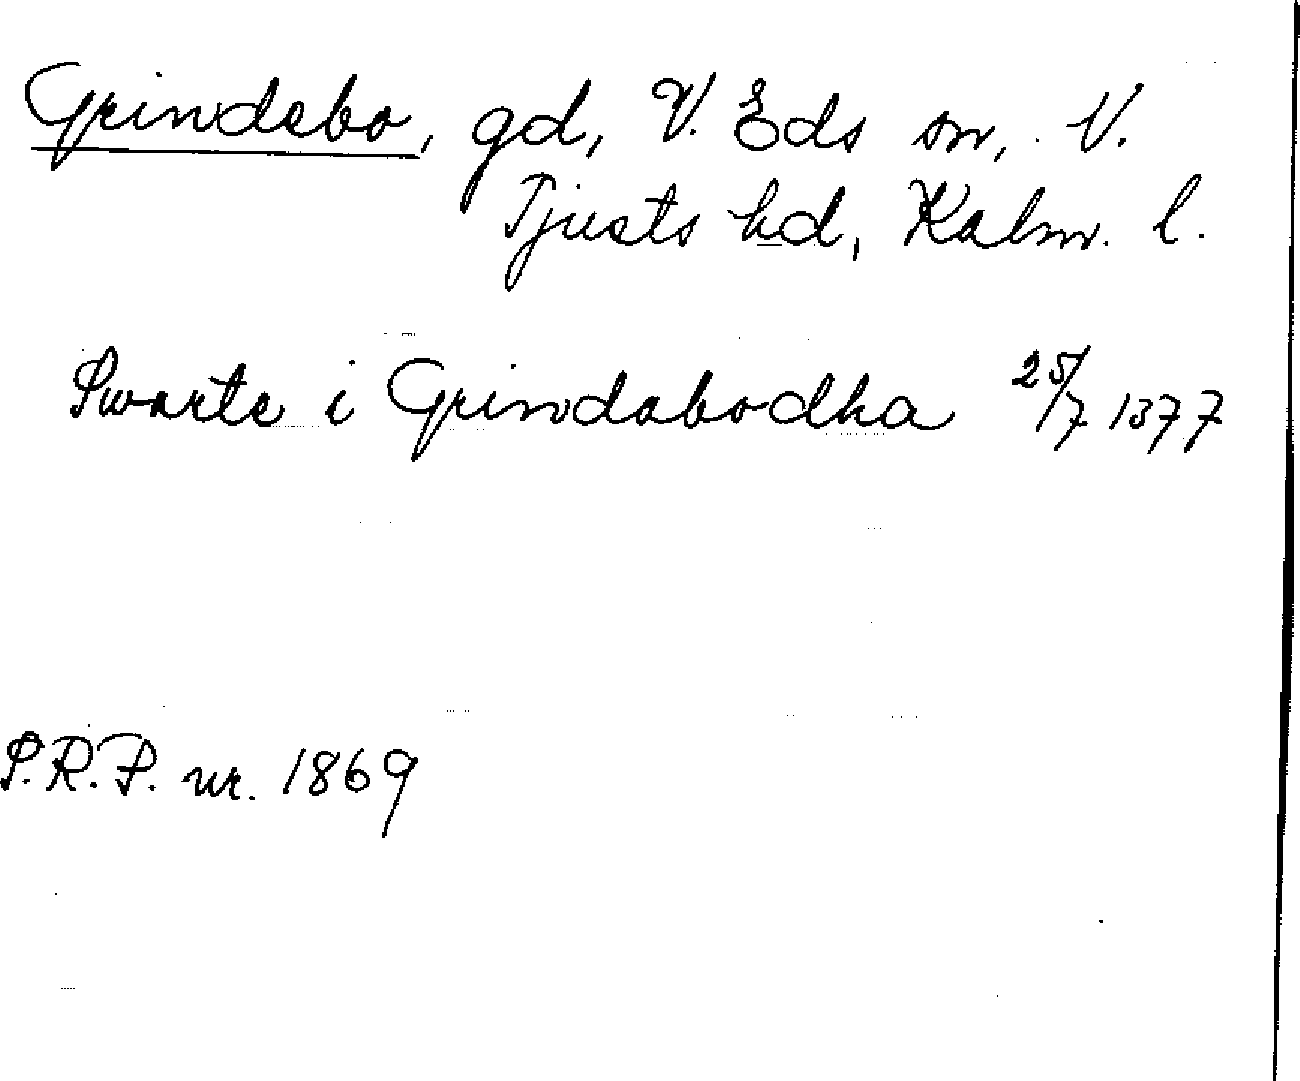 Grindebo, gd, V. Eds sn, V.
Tjusts hd, Kalm. l.
Swarte i Grindabodha 25/7 1377
S.R.P. nr. 1869